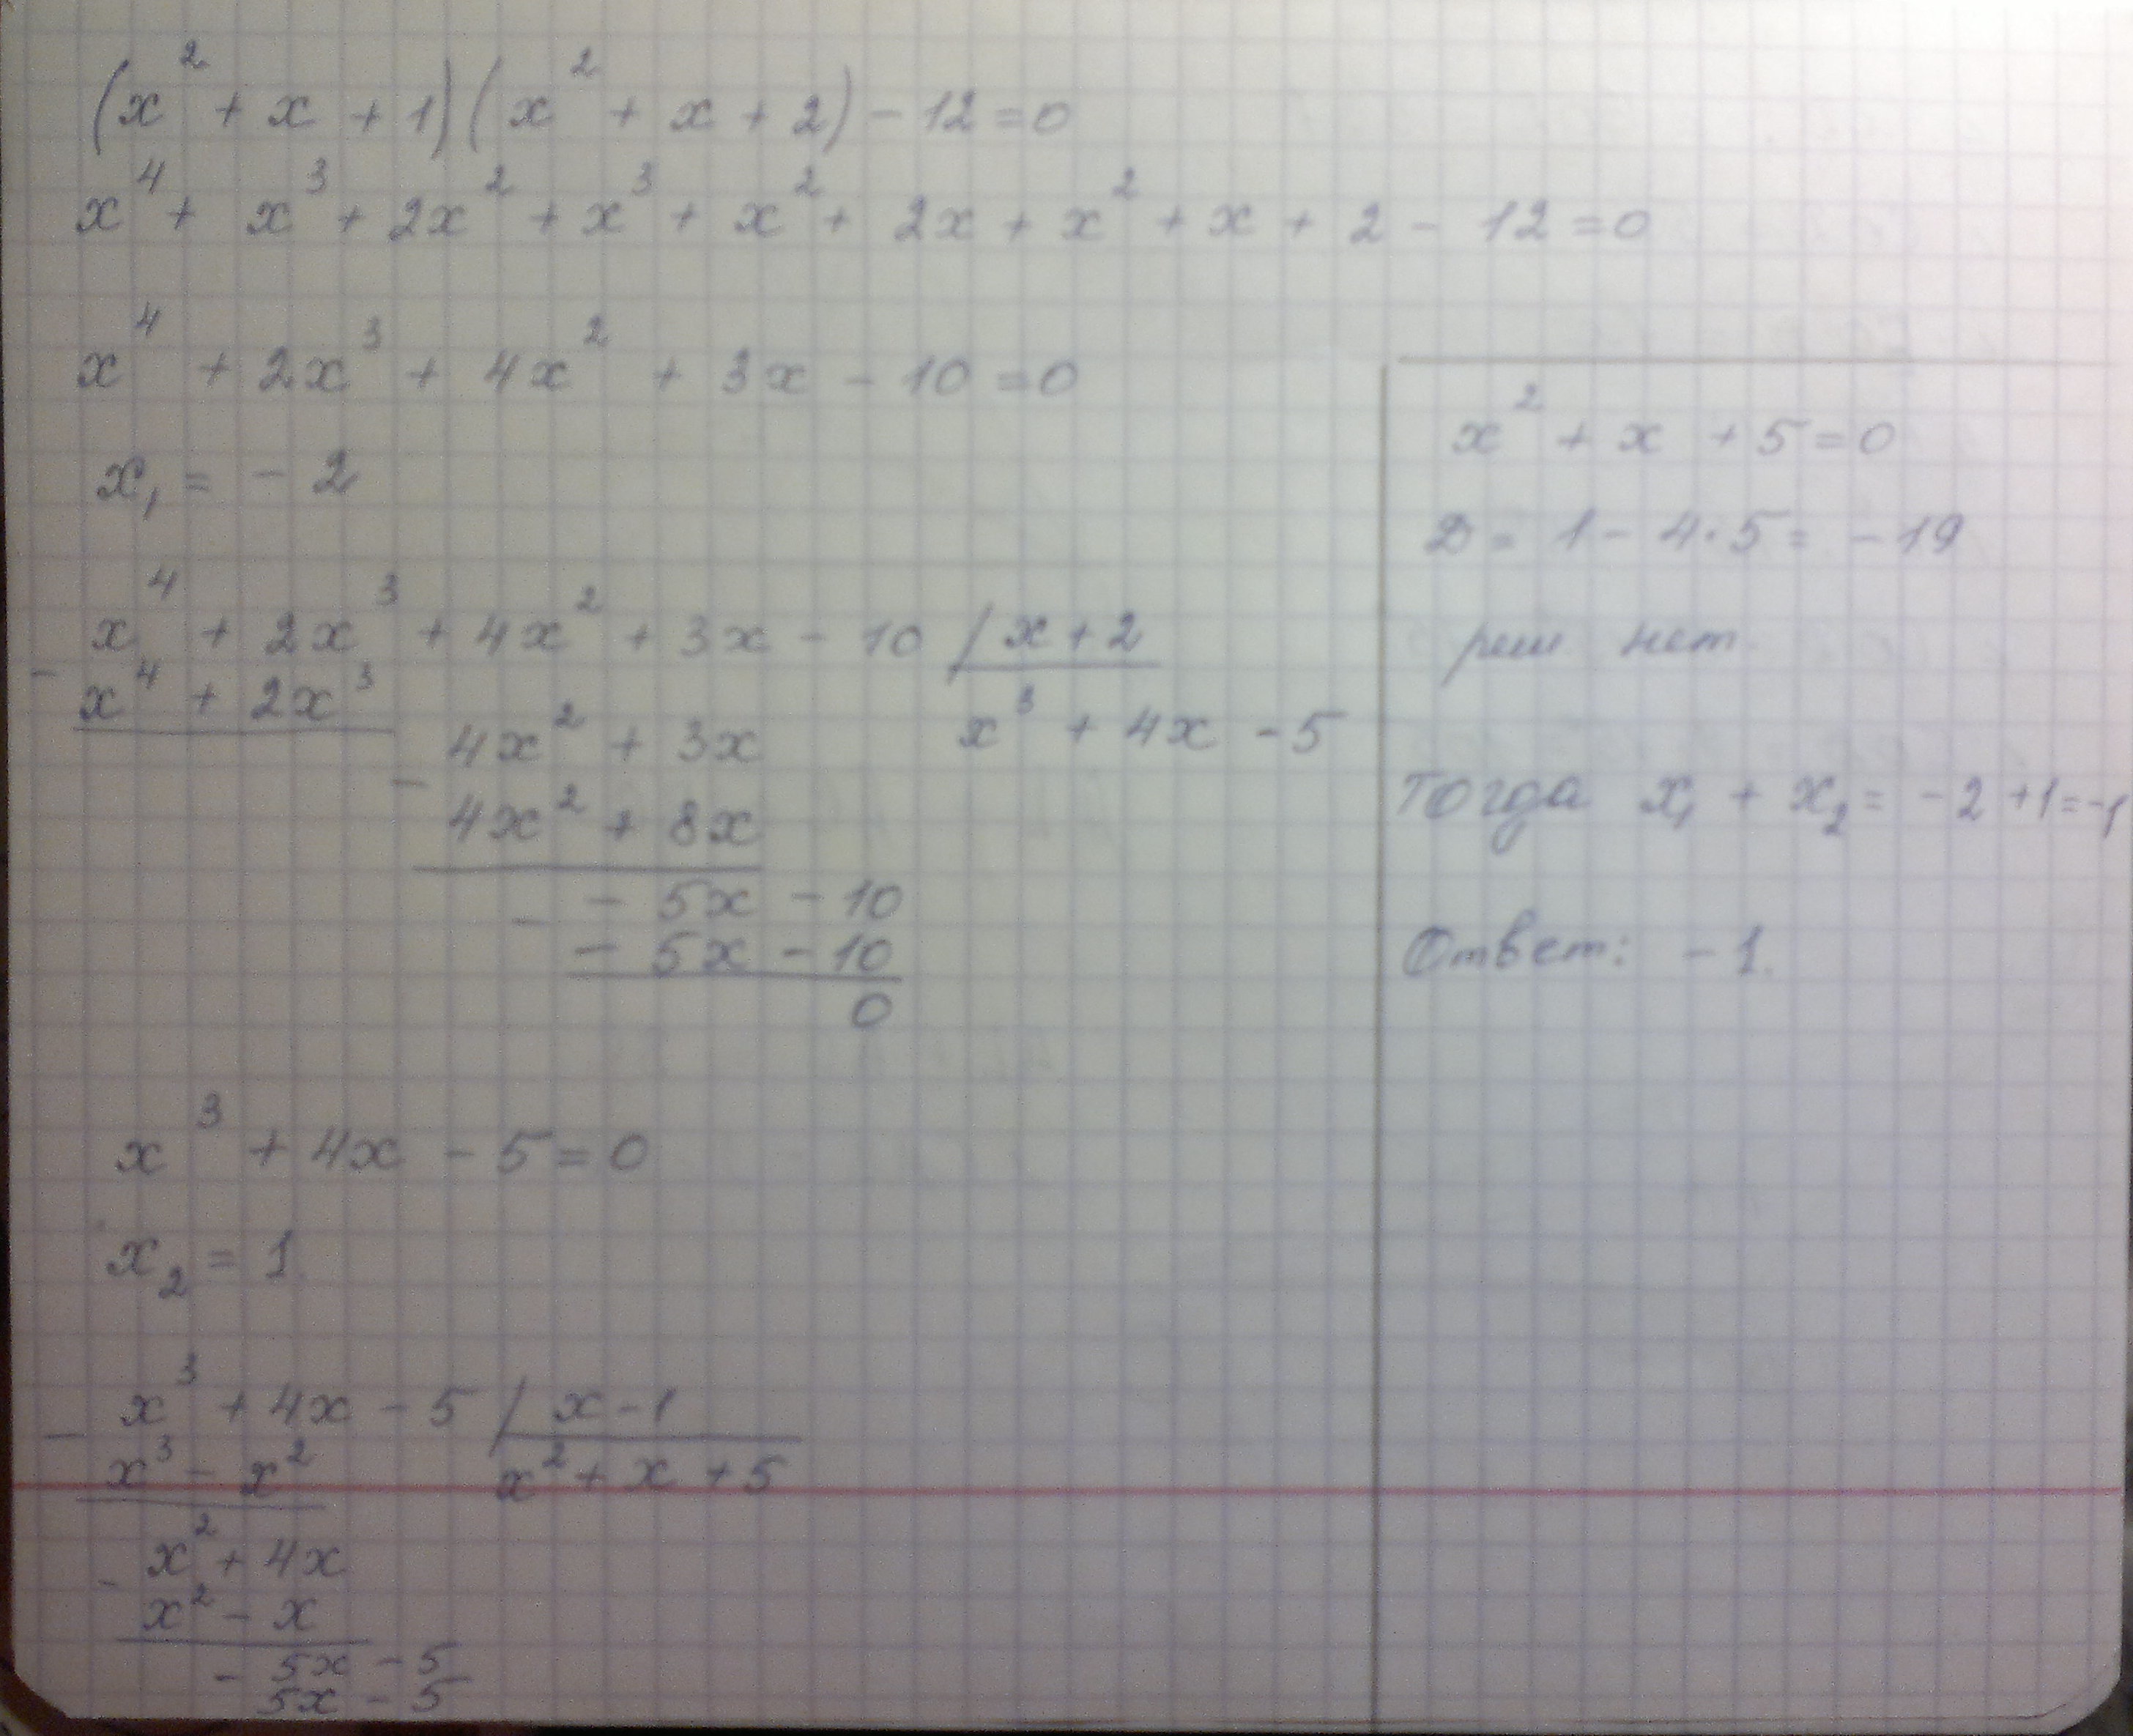 (x² + x + 1)(x² + x + 2) - 12 = 0
x⁴ + x³ + 2x² + x³ + x² + 2x + x² + x + 2 - 12 = 0
x⁴ + 2x³ + 4x² + 3x - 10 = 0
x₁ = - 2
- x⁴ + 2x³ + 4x² + 3x - 10 / x + 2
x⁴ + 2x³
- 4x² + 3x x³ + 4x - 5
4x² + 8x
- - 5x - 10
- 5x - 10
0
x³ + 4x - 5 = 0
x₂ = 1
- x³ + 4x - 5 / x - 1
x³ - x² x² + x + 5
- x² + 4x
x² - x
- 5x - 5
5x - 5
x² + x + 5 = 0
D = 1 - 4·5 = - 19
реш нет.
Тогда x₁ + x₂ = - 2 + 1 = -1
Ответ: - 1.